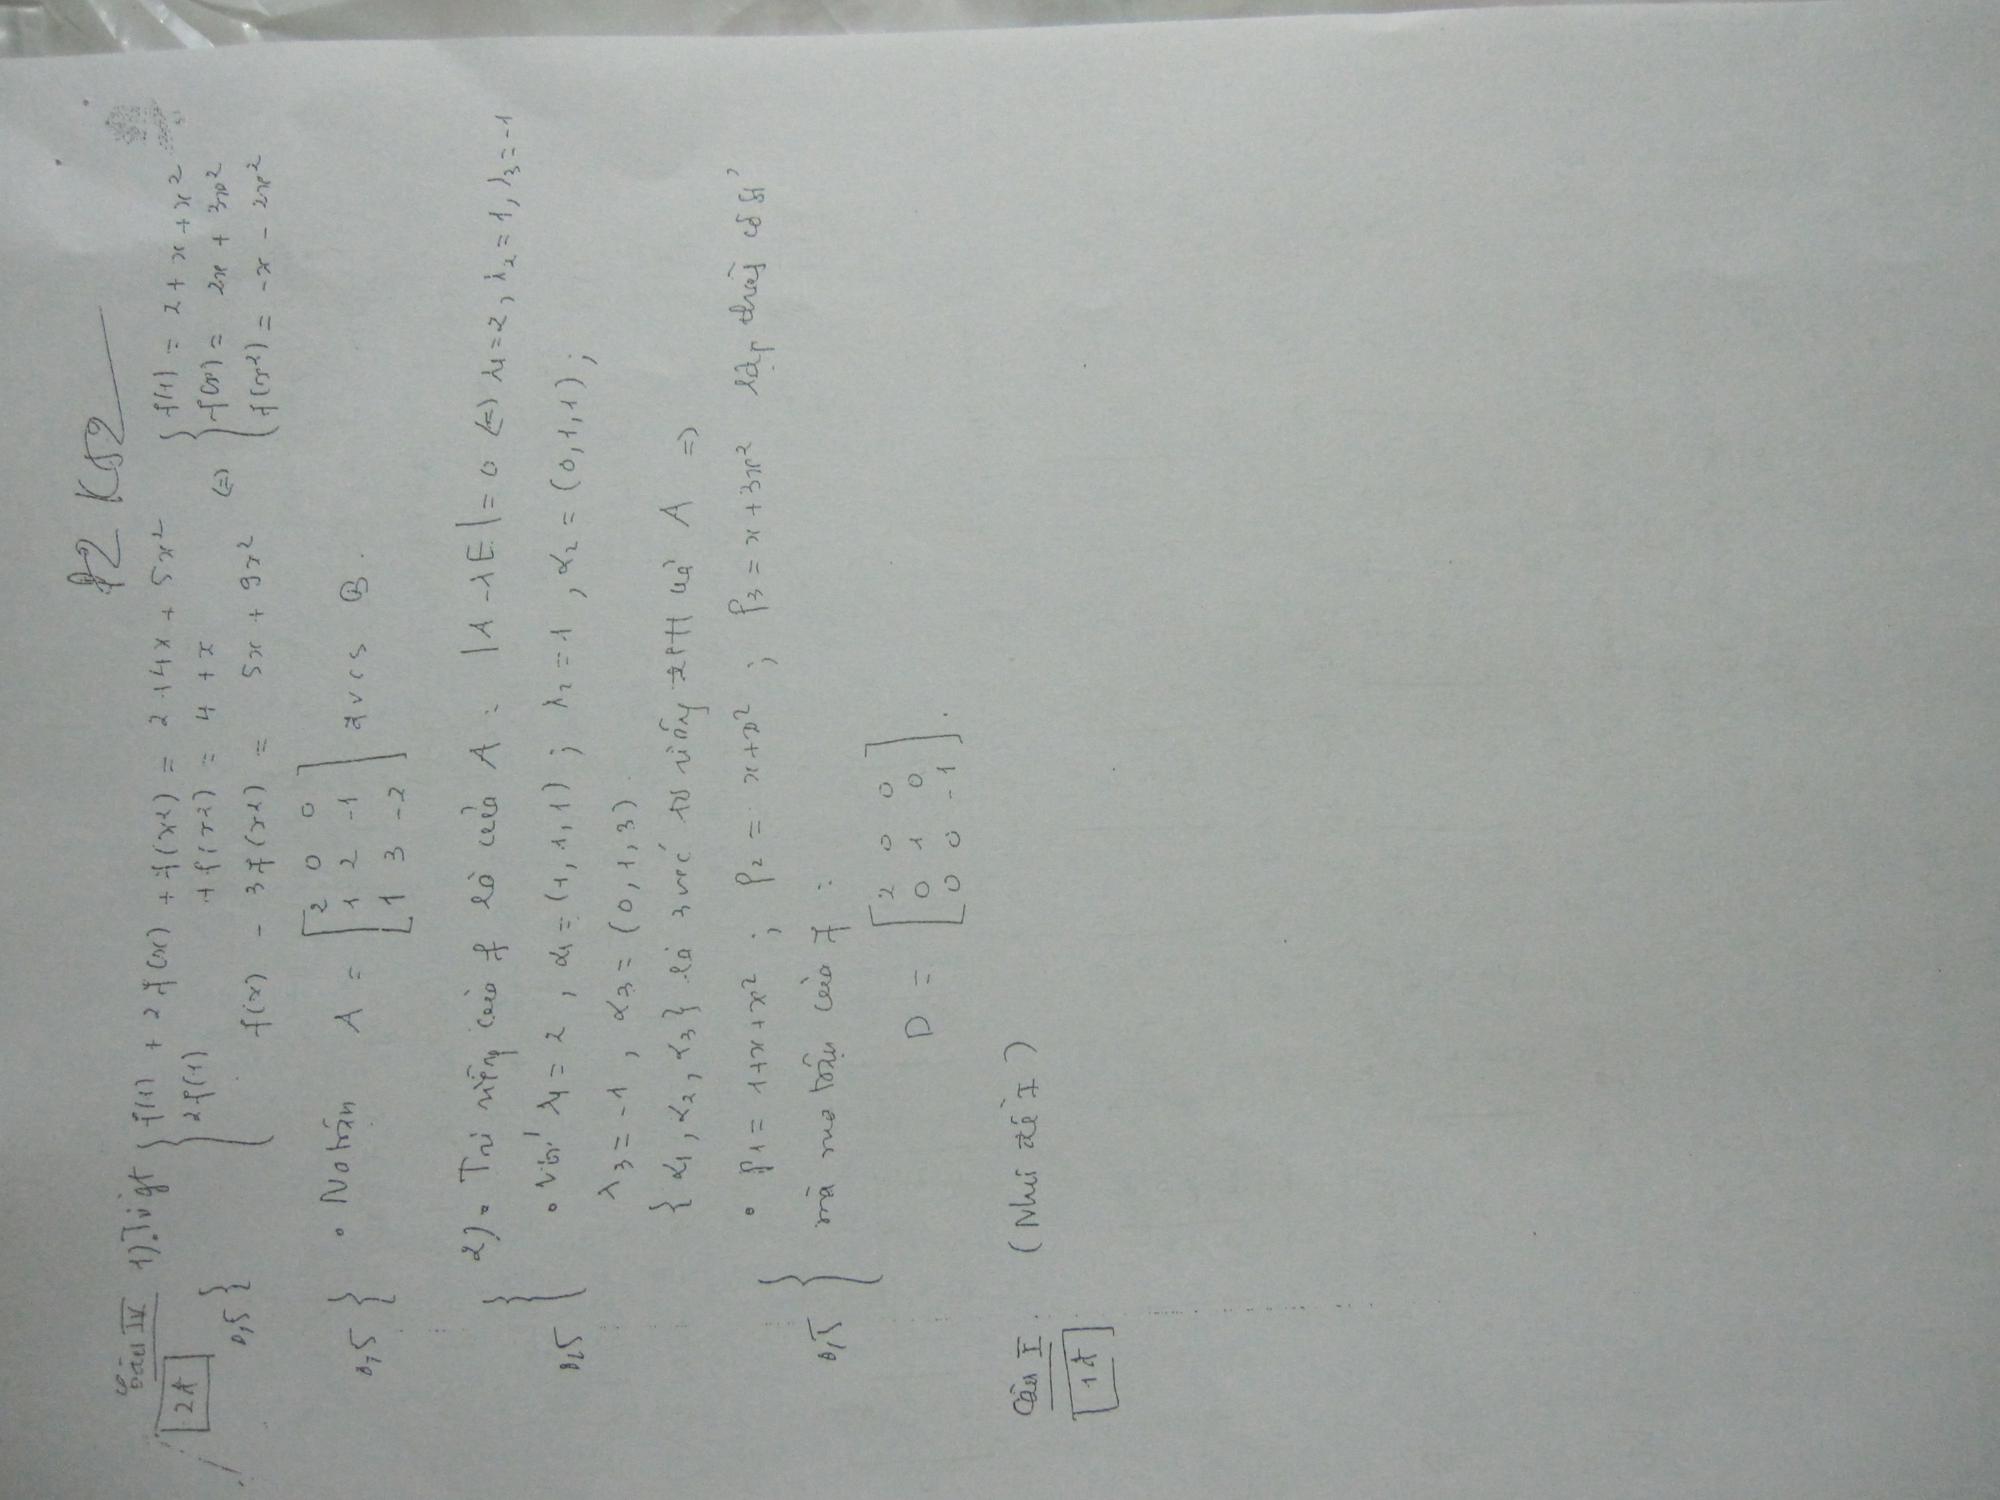 Đ2 K52
Câu IV 1). Từ gt { f(1) + 2f(x) + f(x²) = 2 + 4x + 5x² { f(1) = 2 + x + x²
2đ 2f(1) + f(x²) = 4 + x (=) f(x) = 2x + 3x²
0,5 { f(x) - 3f(x²) = 5x + 9x² f(x²) = -x - 2x²
0,5 { • Ma trận A = [ 2 0 0
1 2 -1
1 3 -2 ] đv cs B.
2) • Trị riêng của f là của A : |A - λE| = 0 (=) λ1 = 2, λ2 = 1, λ3 = -1
0,5 { • Với λ1 = 2 , α1 = (1, 1, 1) ; λ2 = 1 , α2 = (0, 1, 1) ;
λ3 = -1 , α3 = (0, 1, 3)
{ α1, α2, α3 } là 3 véc tơ riêng đltt của A =>
• P1 = 1+x+x² ; P2 = x+x² ; P3 = x+3x² lập thành cơ sở
0,5 { mà ma trận của f :
D = [ 2 0 0
0 1 0
0 0 -1 ] .
Câu I . (Như đề I)
1đ